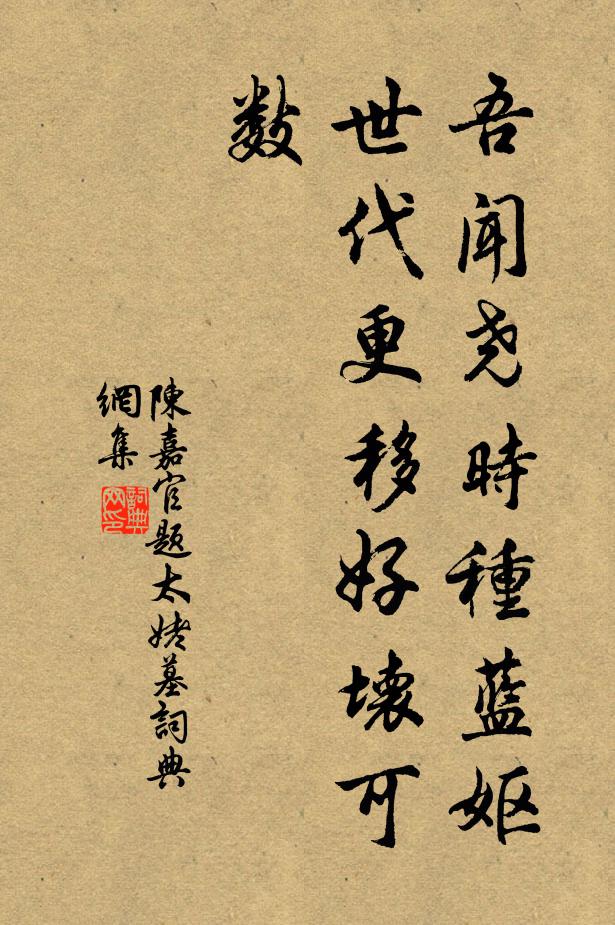 吾闻尧時種藍妪
世代更移好壞可
数
陳嘉官題太姥墓詞典
網集
詞典網印